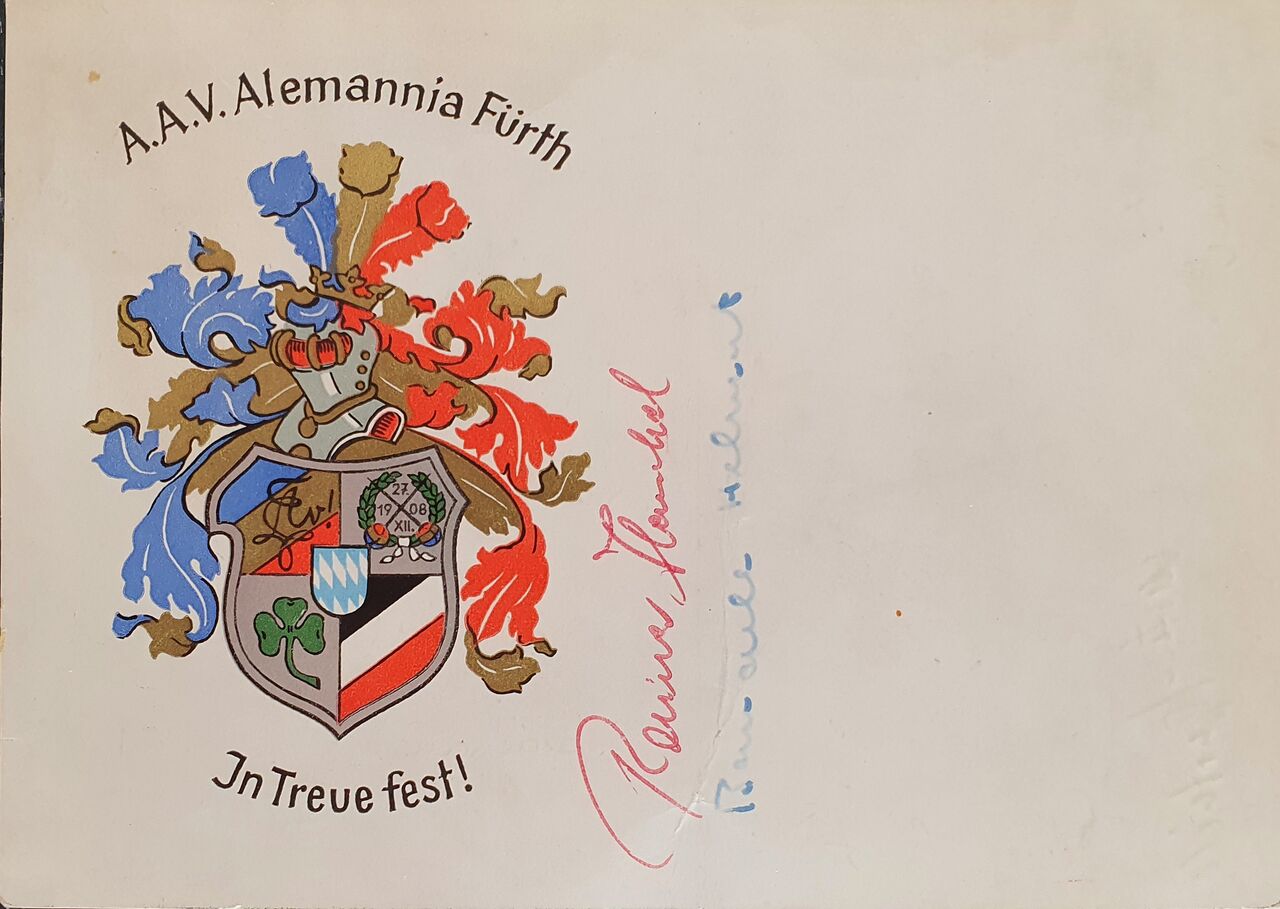 A.A.V. Alemannia Fürth
27.
19 08
XII.
In Treue fest!
Rainer